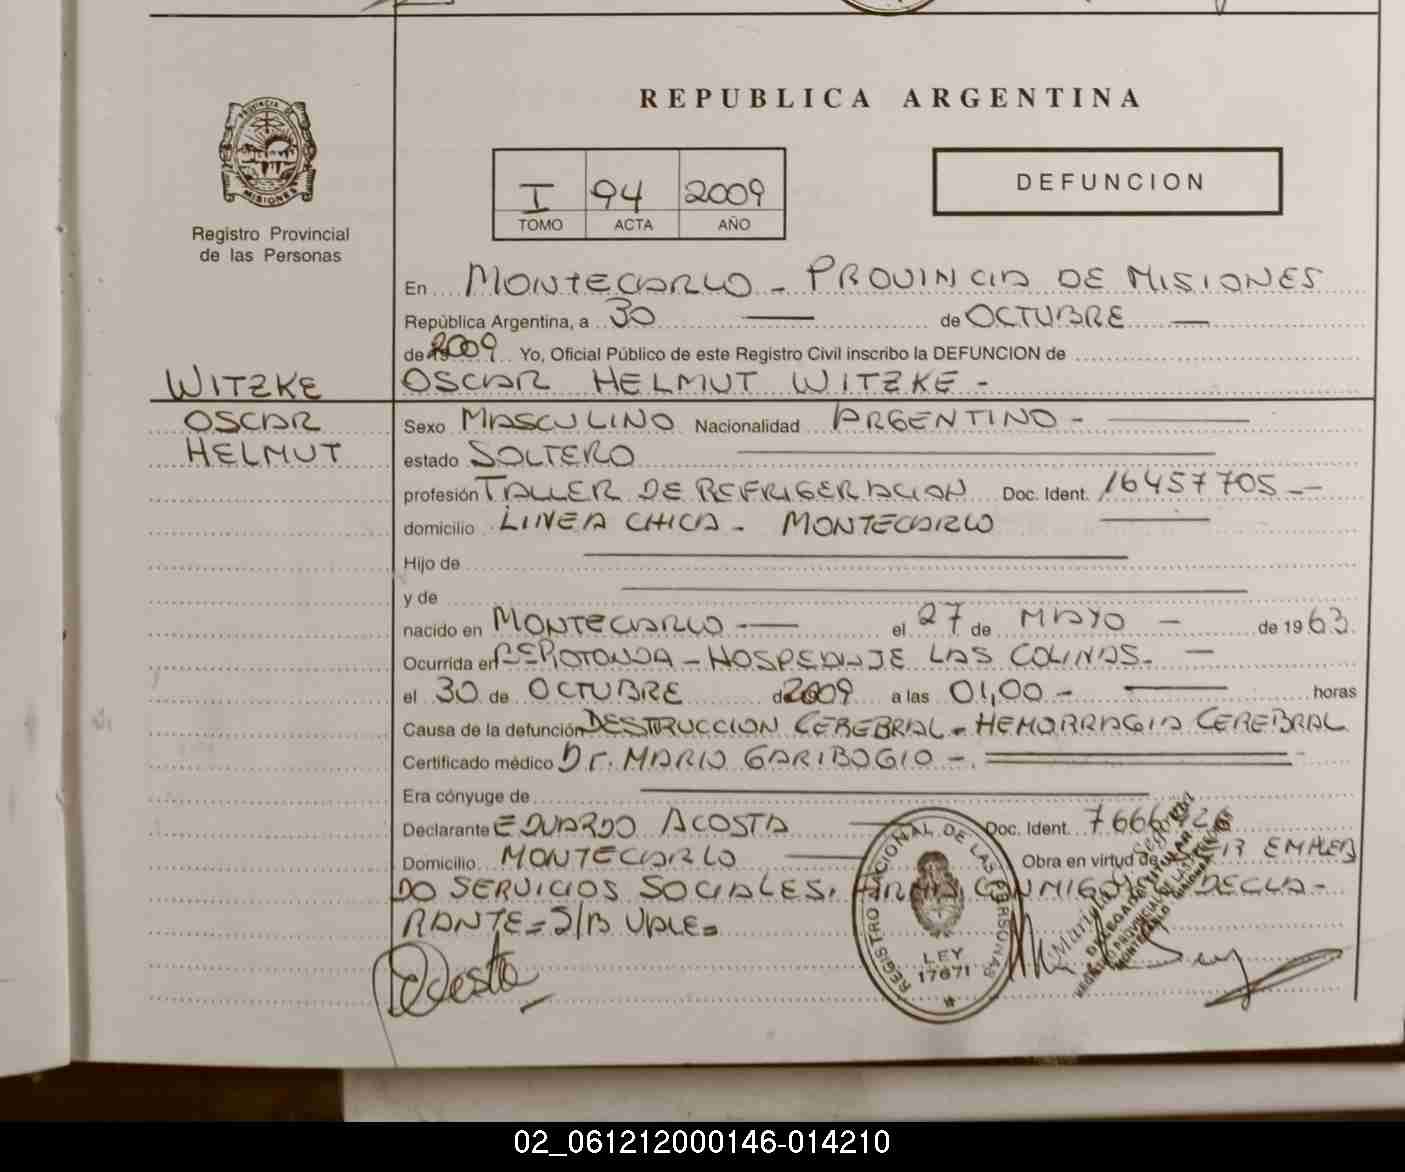 REPUBLICA ARGENTINA
PROVINCIA DE
MISIONES
Registro Provincial
de las Personas
I 94 2009
TOMO ACTA AÑO
DEFUNCION
En MONTECARLO - PROVINCIA DE MISIONES
República Argentina, a 30 — de OCTUBRE —
de 2009 Yo, Oficial Público de este Registro Civil inscribo la DEFUNCION de
WITZKE OSCAR HELMUT WITZKE -
OSCAR Sexo MASCULINO Nacionalidad ARGENTINO -
HELMUT estado SOLTERO
profesión TALLER DE REFRIGERACION Doc. Ident. 16457705 --
domicilio LINEA CHICA - MONTECARLO
Hijo de
y de
nacido en MONTECARLO - el 27 de MAYO - de 1963.
Ocurrida en ROTONDA - HOSPEDAJE LAS COLINAS. -
el 30 de OCTUBRE de 2009 a las 01,00 - horas
Causa de la defunción DESTRUCCION CEREBRAL - HEMORRAGIA CEREBRAL
Certificado médico Dr. MARIO GARIBOGIO -.
Era cónyuge de
Declarante EDUARDO ACOSTA Doc. Ident. 7666
Domicilio MONTECARLO Obra en virtud de EMPLEA
DO SERVICIOS SOCIALES. FIRMA CONMIGO DECLA-
RANTE = S/B VALE =
REGISTRO NACIONAL DE LAS PERSONAS
LEY
17671
02_061212000146-014210